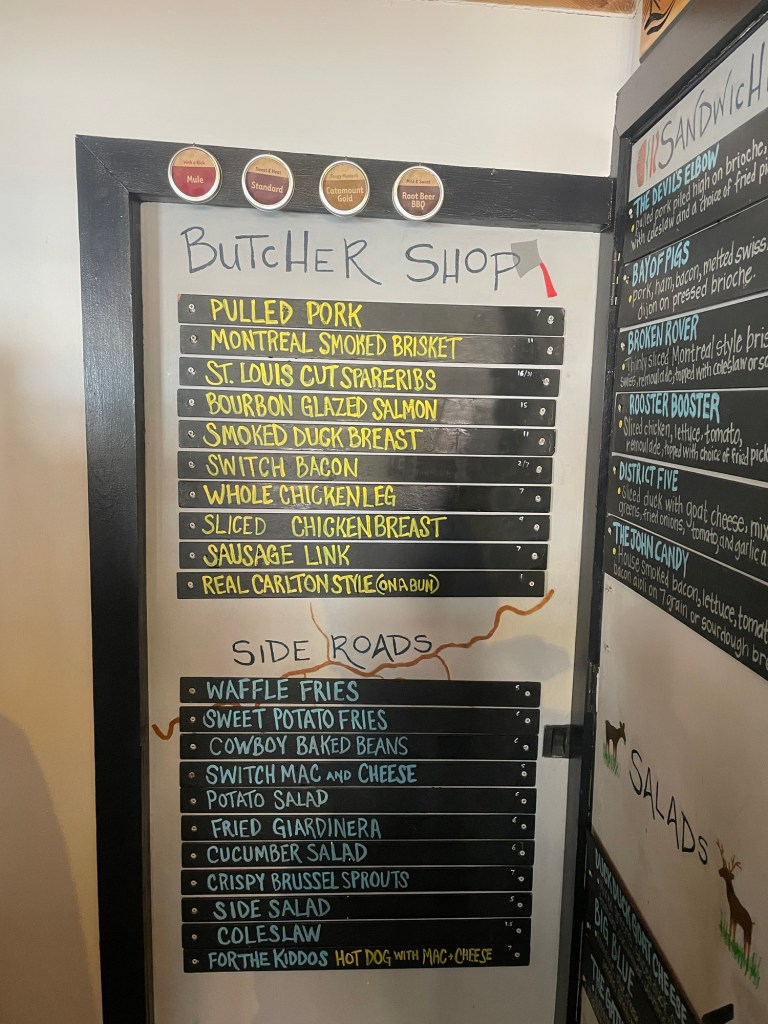 Mule
Standard
Catamount
Gold
Root Beer
BBQ
BUTCHER SHOP
PULLED PORK 7
MONTREAL SMOKED BRISKET 11
ST. LOUIS CUT SPARERIBS 16/31
BOURBON GLAZED SALMON 15
SMOKED DUCK BREAST 11
SWITCH BACON 2/7
WHOLE CHICKEN LEG 7
SLICED CHICKEN BREAST 9
SAUSAGE LINK 7
REAL CARLTON STYLE (ON A BUN) 1
SIDE ROADS
WAFFLE FRIES
SWEET POTATO FRIES
COWBOY BAKED BEANS
SWITCH MAC AND CHEESE
POTATO SALAD
FRIED GIARDINERA
CUCUMBER SALAD
CRISPY BRUSSEL SPROUTS 7
SIDE SALAD 5
COLESLAW
FOR THE KIDDOS HOT DOG WITH MAC + CHEESE 7
SANDWICH
THE DEVIL'S ELBOW
pulled pork piled high on brioche,
with coleslaw and a choice of fried
BAY OF PIGS
pork, ham, bacon, melted swiss,
dijon on pressed brioche.
BROKEN ROVER
Thinly sliced Montreal style
swiss, remoulade, topped with coleslaw or
ROOSTER BOOSTER
Sliced chicken, lettuce, tomato,
remoulade, topped with choice of fried
DISTRICT FIVE
Sliced duck with goat cheese,
greens, fried onions, tomato, and garlic
THE JOHN CANDY
House smoked bacon, lettuce,
bacon aioli on 7 grain or sourdough
SALADS
DUCK DUCK GOAT CHEESE
BIG BLUE
THE